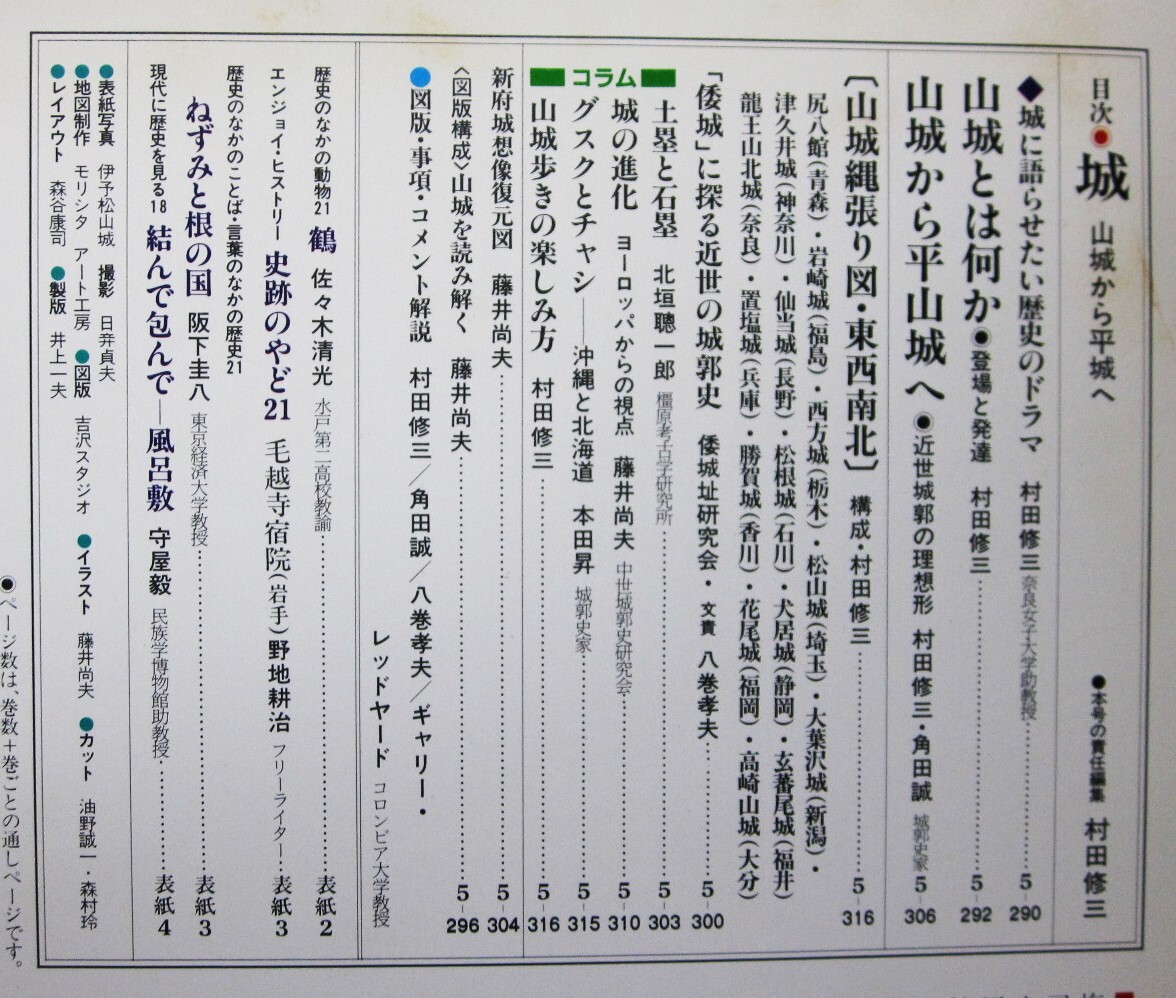 目次●城 山城から平城へ ●本号の責任編集 村田修三
◆城に語らせたい歴史のドラマ 村田修三 奈良女子大学助教授 5-290
山城とは何か ●登場と発達 村田修三 5-292
山城から平山城へ ●近世城郭の理想形 村田修三・角田誠 城郭史家 5-306
〔山城縄張り図・東西南北〕 構成・村田修三 5-316
尻八館(青森)・岩崎城(福島)・西方城(栃木)・松山城(埼玉)・大葉沢城(新潟)・
津久井城(神奈川)・仙当城(長野)・松根城(石川)・犬居城(静岡)・玄蕃尾城(福井)
龍王山北城(奈良)・置塩城(兵庫)・勝賀城(香川)・花尾城(福岡)・高崎山城(大分)
「倭城」に探る近世の城郭史 倭城址研究会・文責 八巻孝夫 5-300
コラム
土塁と石塁 北垣聰一郎 橿原考古学研究所 5-303
城の進化 ヨーロッパからの視点 藤井尚夫 中世城郭史研究会 5-310
グスクとチャシ──沖縄と北海道 本田昇 城郭史家 5-315
山城歩きの楽しみ方 村田修三 5-316
新府城想像復元図 藤井尚夫 5-304
〈図版構成〉山城を読み解く 藤井尚夫 5-296
●図版・事項・コメント解説 村田修三/角田誠/八巻孝夫/ギャリー・
レッドヤード コロンビア大学教授
歴史のなかの動物21 鶴 佐々木清光 水戸第二高校教諭 表紙2
エンジョイ・ヒストリー 史跡のやど21 毛越寺宿院(岩手) 野地耕治 フリーライター 表紙3
歴史のなかのことば・言葉のなかの歴史21
ねずみと根の国 阪下圭八 東京経済大学教授 表紙3
現代に歴史を見る18 結んで包んで──風呂敷 守屋毅 民族学博物館助教授 表紙4
●表紙写真 伊予松山城 撮影 日弃貞夫
●地図制作 モリシタ アート工房 ●図版 吉沢スタジオ ●イラスト 藤井尚夫 ●カット 油野誠一・森村玲
●レイアウト 森谷康司 ●製版 井上一夫
●ページ数は、巻数+巻ごとの通しページです。